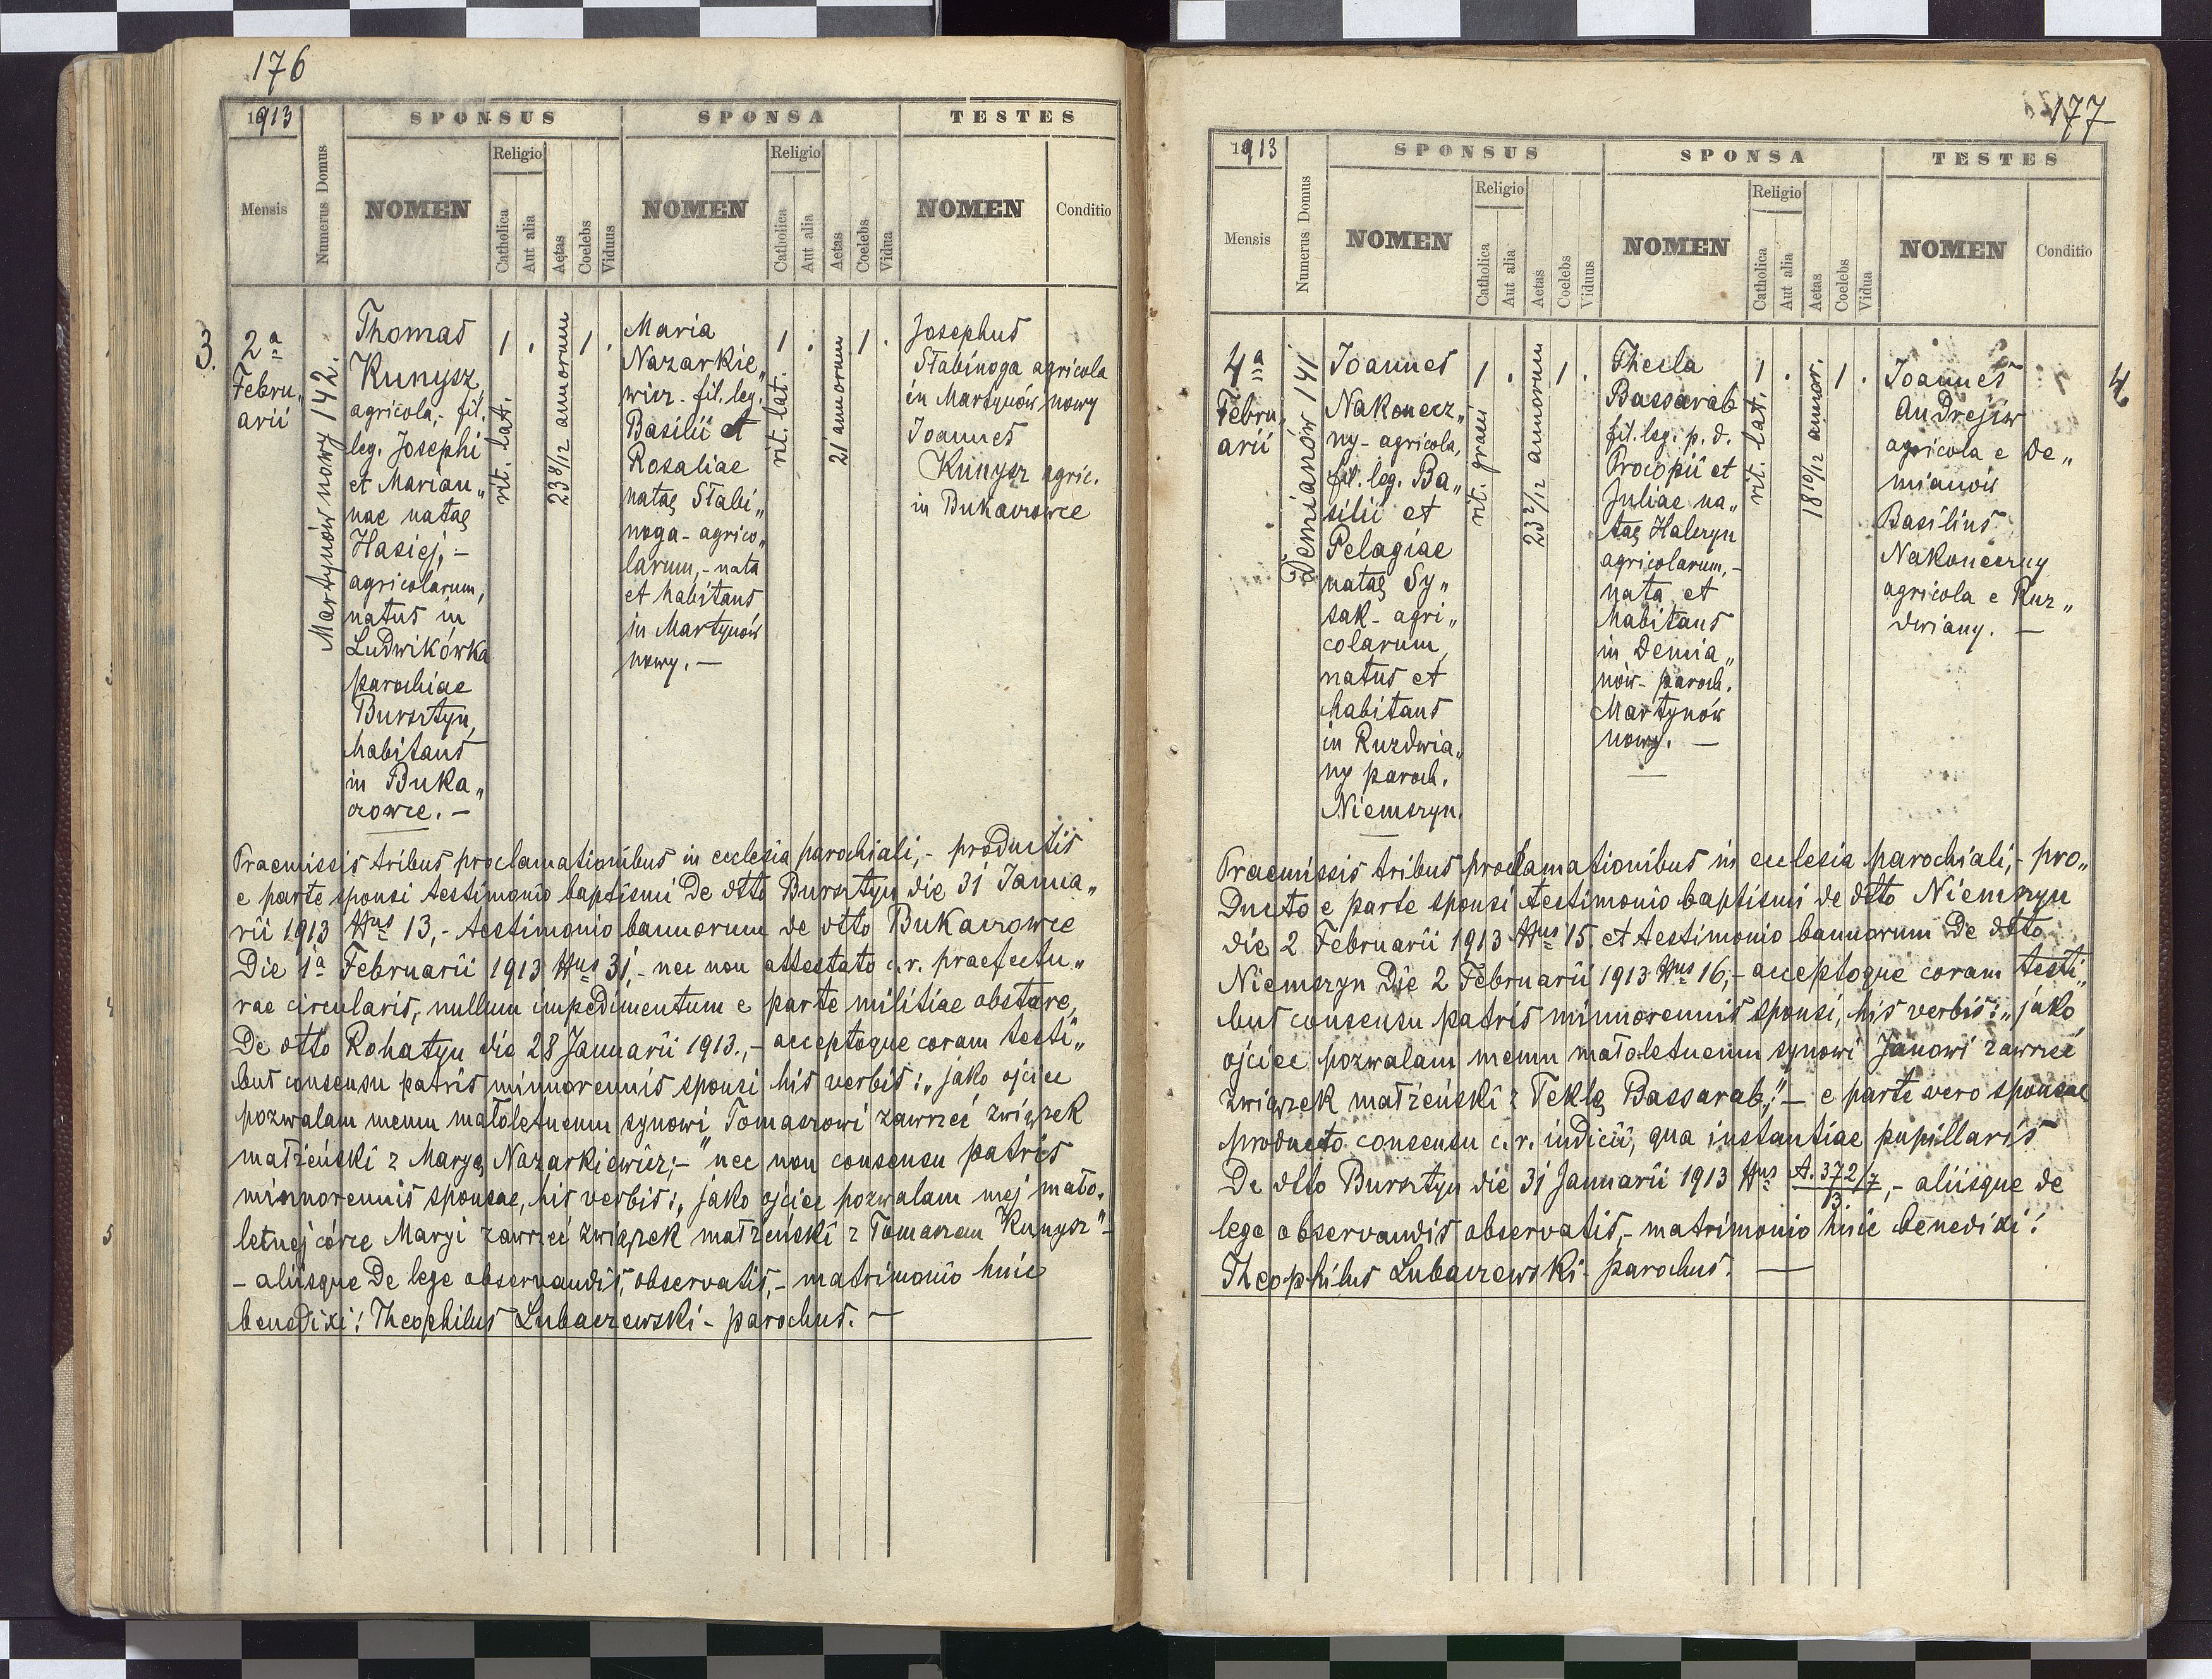 176
1913
SPONSUS
SPONSA
TESTES
Mensis
Numerus Domus
NOMEN
Religio
Catholica
Aut alia
Aetas
Coelebs
Viduus
NOMEN
Religio
Catholica
Aut alia
Aetas
Coelebs
Vidua
NOMEN
Conditio
3.
2a
Febru„
arii
Martynów nowy 142.
Thomas
Kunysz
agricola,- fil.
leg. Josephi
et Marian„
nae natae
Hasiej,-
agricolarum,
natus in
Ludwikówka
parochiae
Bursztyn,
habitans
in Buka„
czowce.-
1
rit. lat.
.
23 8/12 annorum
1
.
Maria
Nazarkie„
wicz- fil. leg.
Basilii et
Rosaliae
natae Słabi„
noga- agrico„
larum,- nata
et habitans
in Martynów
nowy.-
1
rit. lat.
.
21 annorum
1
.
Josephus
Słabinoga agricola
in Martynów nowy
Joannes
Kunysz agric.
in Bukaczowce
Praemissis tribus proclamationibus in ecclesia parochiali,- productis
e parte sponsi testimonio baptismi de dtto Bursztyn die 31 Janua„
rii 1913 Nus 13,- testimonio bannorum de dtto Bukaczowce
die 1a Februarii 1913 Nus 31,- nec non attestato c.r. praefectu„
rae circularis, nullum impedimentum e parte militiae obstare,
de dtto Rohatyn die 28 Januarii 1913.,- acceptoque coram testi„
bus consensu patris minnorennis sponsi his verbis: „jako ojciec
pozwalam memu małoletnemu synowi Tomaszowi zawrzeć związek
małżeński z Maryą Nazarkiewicz;-" nec non consensu patris
minnorennis sponsae, his verbis: „jako ojciec pozwalam mej mało„
letnej córce Maryi zawrzeć związek małżeński z Tomaszem Kunysz"-
- aliisque de lege observandis, observatis,- matrimonio huic
benedixi! Theophilus Lubaczewski- parochus.-
177
1913
SPONSUS
SPONSA
TESTES
Mensis
Numerus Domus
NOMEN
Religio
Catholica
Aut alia
Aetas
Coelebs
Viduus
NOMEN
Religio
Catholica
Aut alia
Aetas
Coelebs
Vidua
NOMEN
Conditio
4a
Febru„
arii
Demianów 141
Joannes
Nakonecz„
ny- agricola,
fil. leg. Ba„
silii et
Pelagiae
natae Sy„
sak- agri„
colarum,
natus et
habitans
in Kuzdwia„
ny paroch.
Niemszyn.
1
rit. graeci
.
23 2/12 annorum
1
.
Thecla
Bassarab
fil. leg. p. d.
Procopii et
Juliae na„
tae Haleryn
agricolarum,-
nata et
habitans
in Demia„
nów- paroch.
Martynów
nowy.-
1
rit. lat.
.
18 10/12 annor.
1
.
Joannes
Andrejiw
agricola e De„
mianów
Basilius
Nakoneczny
agricola e Kuz„
dwiany.-
4
Praemissis tribus proclamationibus in ecclesia parochiali,- pro„
ducto e parte sponsi testimonio baptismi de dtto Niemszyn
die 2 Februarii 1913 Nus 15 et testimonio bannorum de dtto
Niemszyn die 2 Februarii 1913 Nus 16,- acceptoque coram testi„
bus consensu patris minnorennis sponsi, his verbis: „jako
ojciec pozwalam memu małoletnemu synowi Janowi zawrzeć
związek małżeński z Teklą Bassarab;"- e parte vero sponsae
producto consensu c.r. iudicii, qua instantiae pupillaris
de dtto Bursztyn die 31 Januarii 1913 Nus A. 372/7/13,- aliisque de
lege observandis observatis,- matrimonio huic benedixi!
Theophilus Lubaczewski- parochus.-